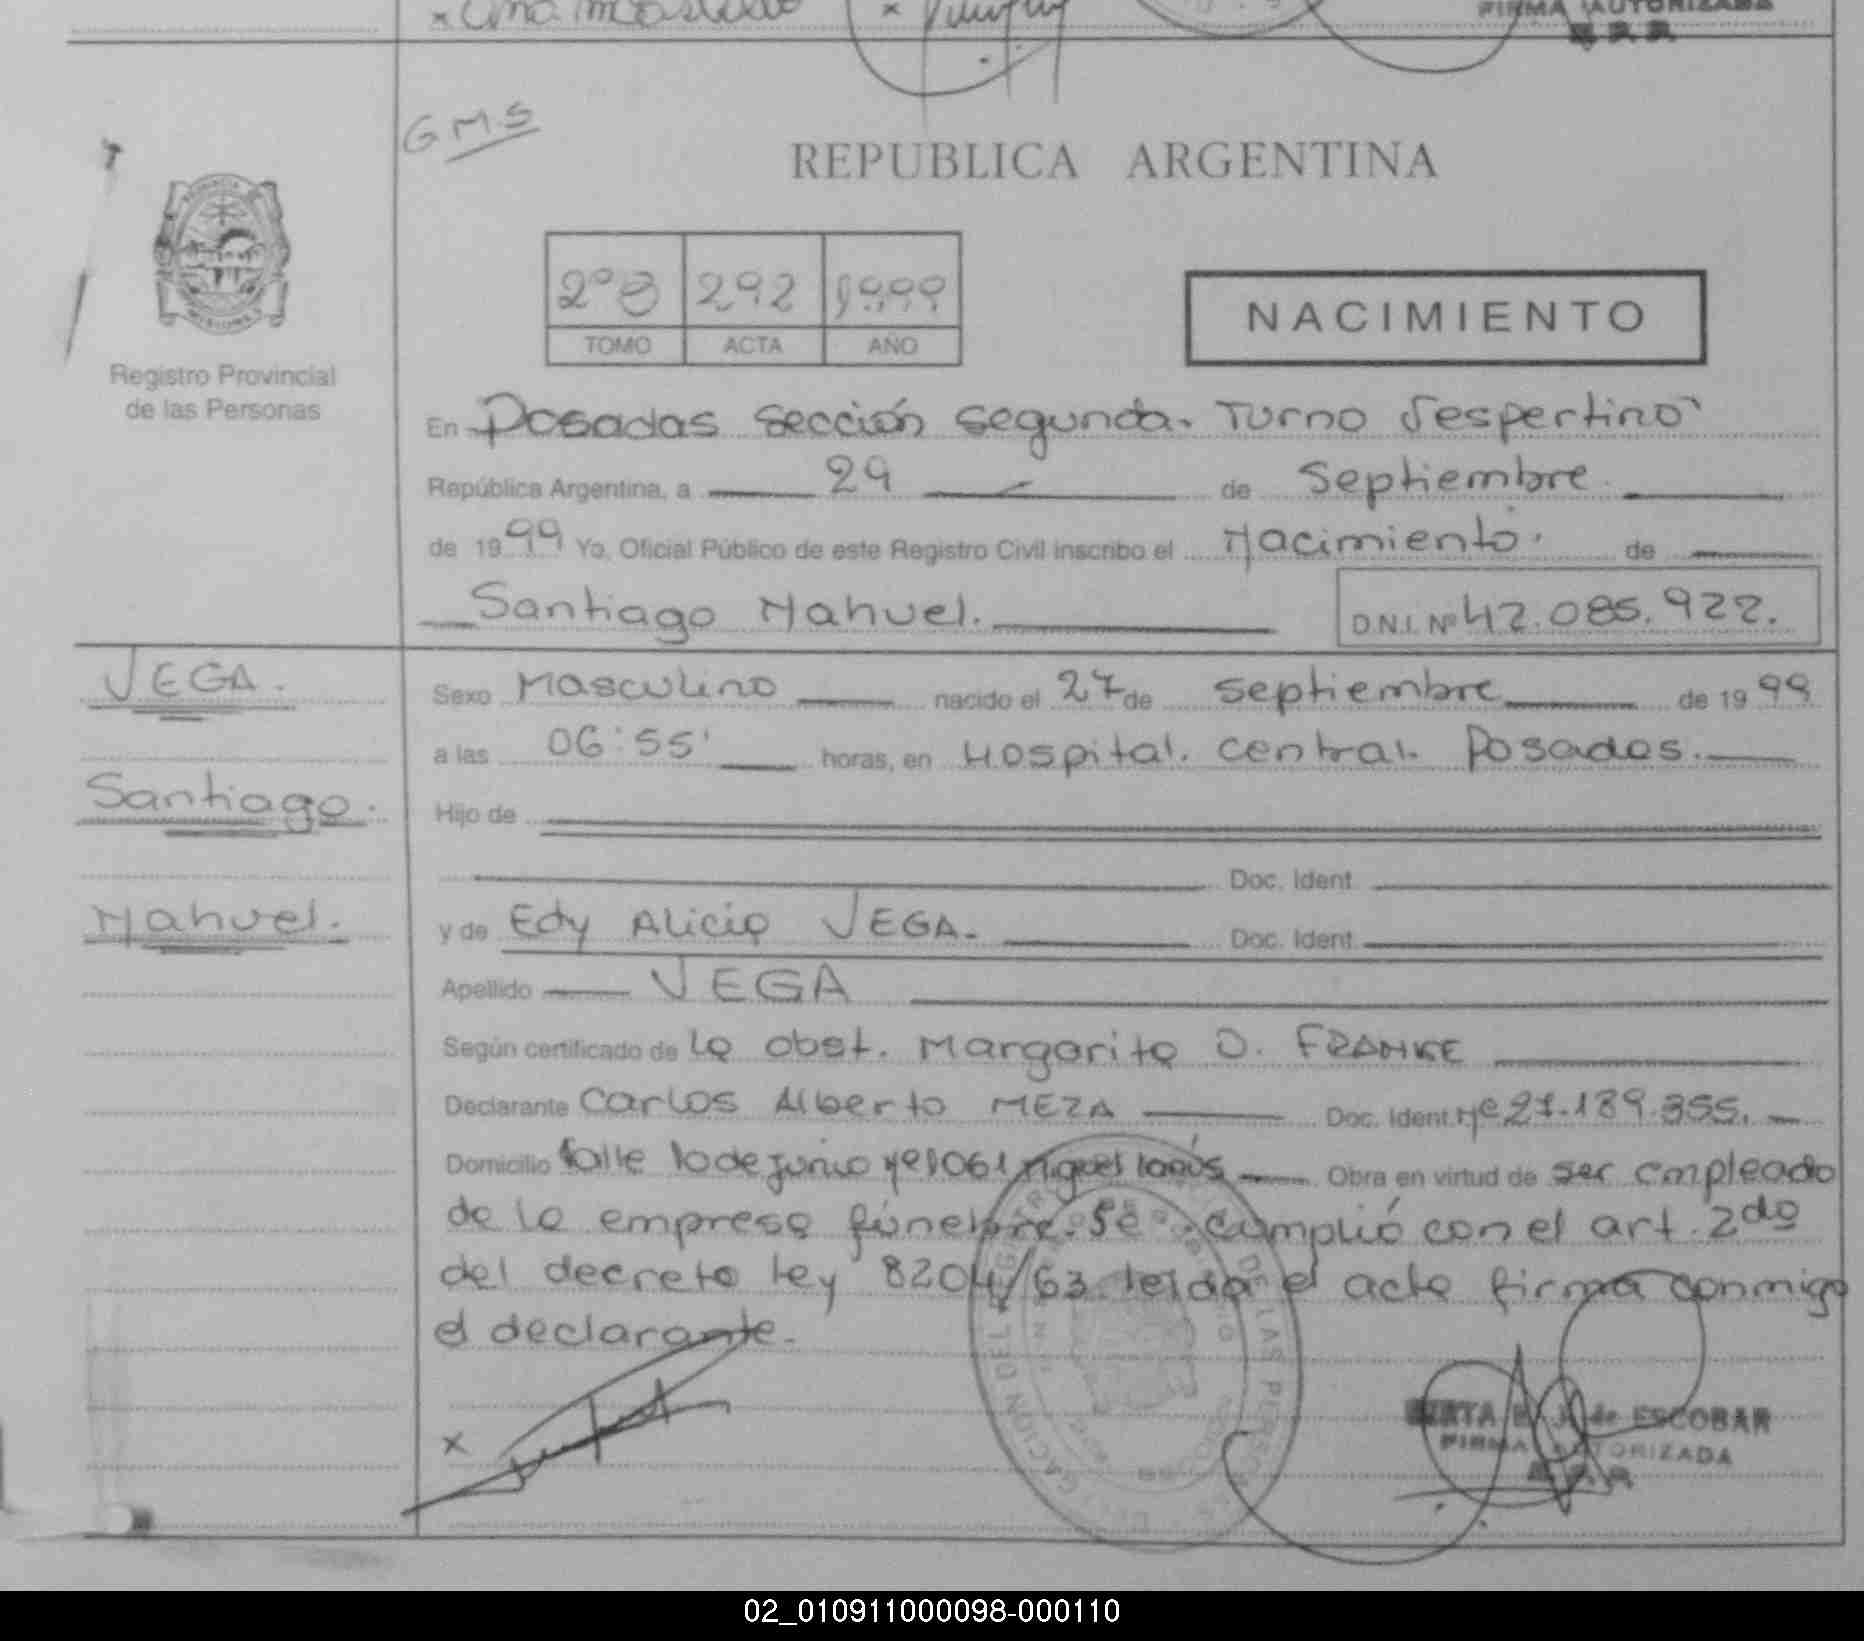 FIRMA AUTORIZADA
GMS
REPUBLICA ARGENTINA
2º B 292 1999
TOMO ACTA AÑO
NACIMIENTO
Registro Provincial
de las Personas
En Posadas sección segunda. Turno Vespertino
República Argentina, a 29 de Septiembre
de 1999 Yo, Oficial Público de este Registro Civil inscribo el Nacimiento. de
Santiago Nahuel. D.N.I. Nº 42.085.922.
VEGA.
Santiago.
Nahuel.
Sexo Masculino nacido el 27 de septiembre de 1999
a las 06:55' horas, en Hospital. central. Posadas.
Hijo de
Doc. Ident.
y de Edy Alicia VEGA. Doc. Ident.
Apellido VEGA
Según certificado de la obst. Margarita D. FRANKE
Declarante Carlos Alberto MEZA Doc. Ident. Nº 27.189.355.
Domicilio Calle 10 de junio Nº 1061 Miguel Lanús Obra en virtud de ser empleado
de la empresa fúnebre. Se cumplió con el art. 2do
del decreto ley 8204/63 leída el acta firma conmigo
el declarante.
x
DELEGACION DEL REGISTRO DE LAS PERSONAS
de ESCOBAR
FIRMA AUTORIZADA
02_010911000098-000110